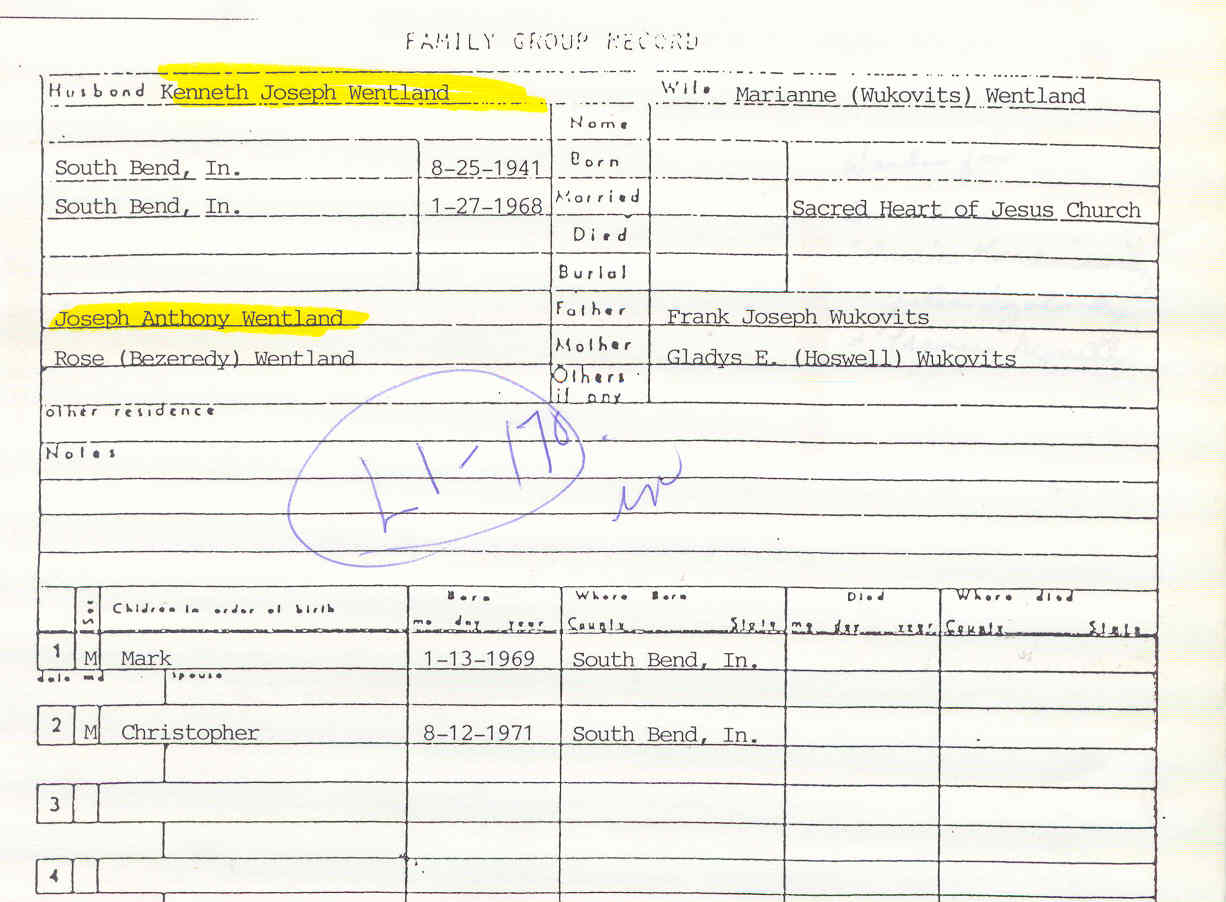 FAMILY GROUP RECORD
Husband Kenneth Joseph Wentland Wife Marianne (Wukovits) Wentland
Name
South Bend, In. 8-25-1941 Born
South Bend, In. 1-27-1968 Married Sacred Heart of Jesus Church
Died
Burial
Joseph Anthony Wentland Father Frank Joseph Wukovits
Rose (Bezeredy) Wentland Mother Gladys E. (Hoswell) Wukovits
Others
if any
other residence
Notes
L1-170
Sex Children in order of birth Born Where Born Died Where died
mo day year County State mo day year County State
1 M Mark 1-13-1969 South Bend, In.
date md spouse
2 M Christopher 8-12-1971 South Bend, In.
3
4